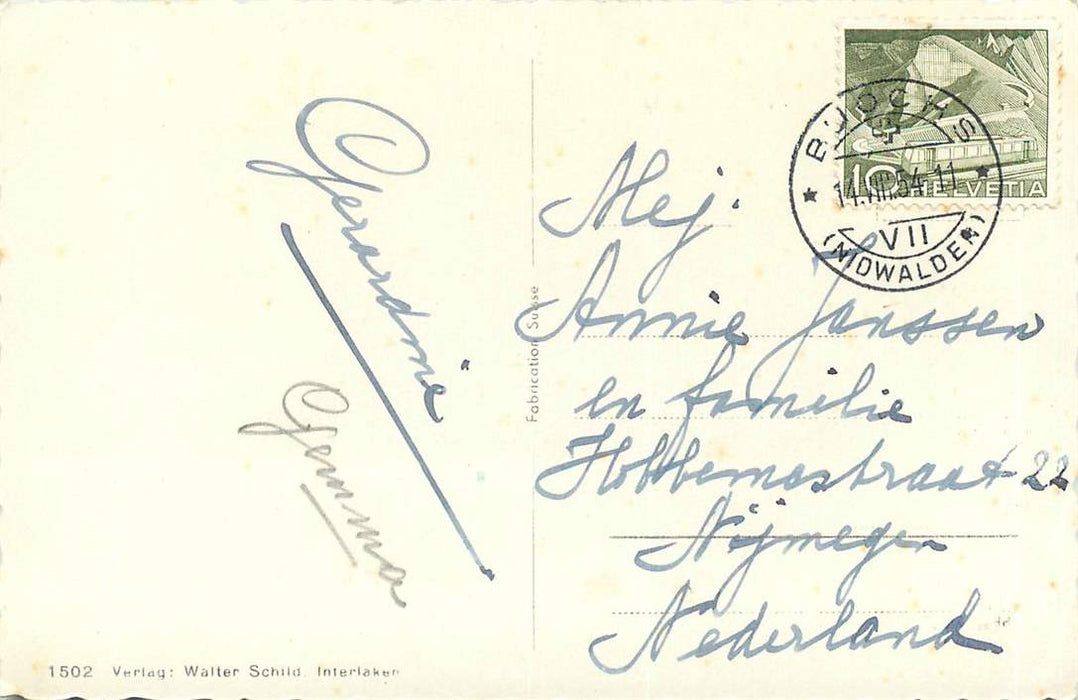 Gerardine
Gemma
1502 Verlag: Walter Schild. Interlaken
Fabrication Suisse
10 HELVETIA
BUOCHS
14.VIII.54-11
VII
(NIDWALDEN)
Mej.
Annie Janssen
en familie
Hobbemastraat 22
Nijmegen
Nederland